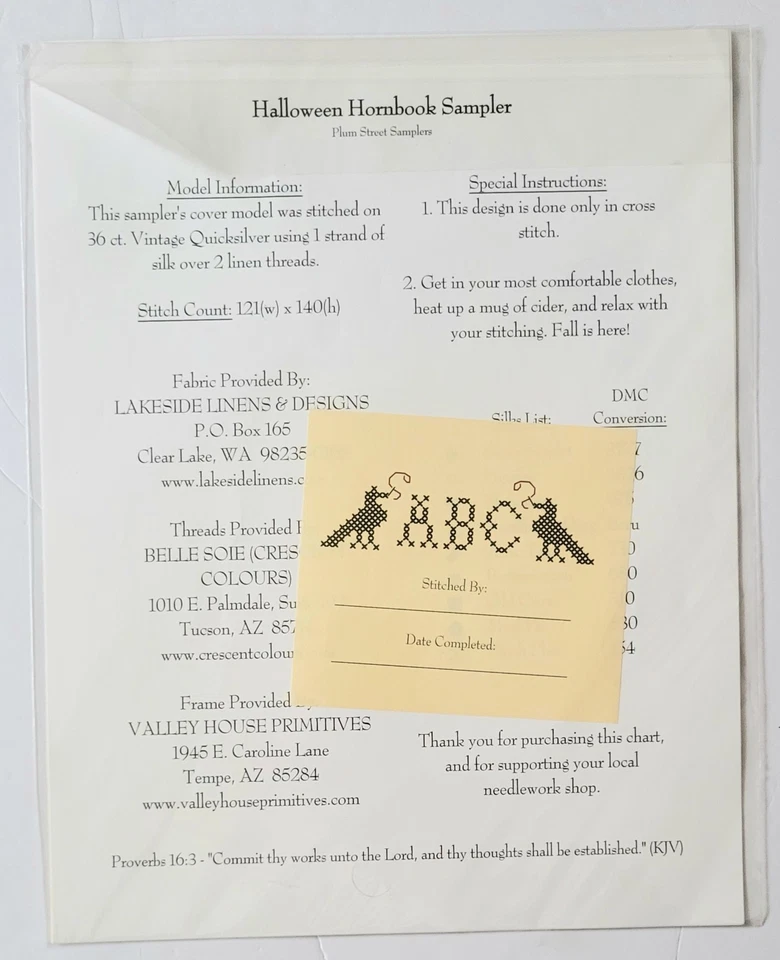 Halloween Hornbook Sampler
Plum Street Samplers
Model Information:
This sampler's cover model was stitched on
36 ct. Vintage Quicksilver using 1 strand of
silk over 2 linen threads.
Stitch Count: 121(w) x 140(h)
Special Instructions:
1. This design is done only in cross
stitch.
2. Get in your most comfortable clothes,
heat up a mug of cider, and relax with
your stitching. Fall is here!
Fabric Provided By:
LAKESIDE LINENS & DESIGNS
P.O. Box 165
Clear Lake, WA 98235
www.lakesidelinens.c
Threads Provided
BELLE SOIE (CRES
COLOURS)
1010 E. Palmdale, Su
Tucson, AZ 857
www.crescentcolou
Frame Provided
VALLEY HOUSE PRIMITIVES
1945 E. Caroline Lane
Tempe, AZ 85284
www.valleyhouseprimitives.com
DMC
Conversion:
7
6
u
0
0
0
30
54
ABC
Stitched By:
Date Completed:
Thank you for purchasing this chart,
and for supporting your local
needlework shop.
Proverbs 16:3 - "Commit thy works unto the Lord, and thy thoughts shall be established." (KJV)